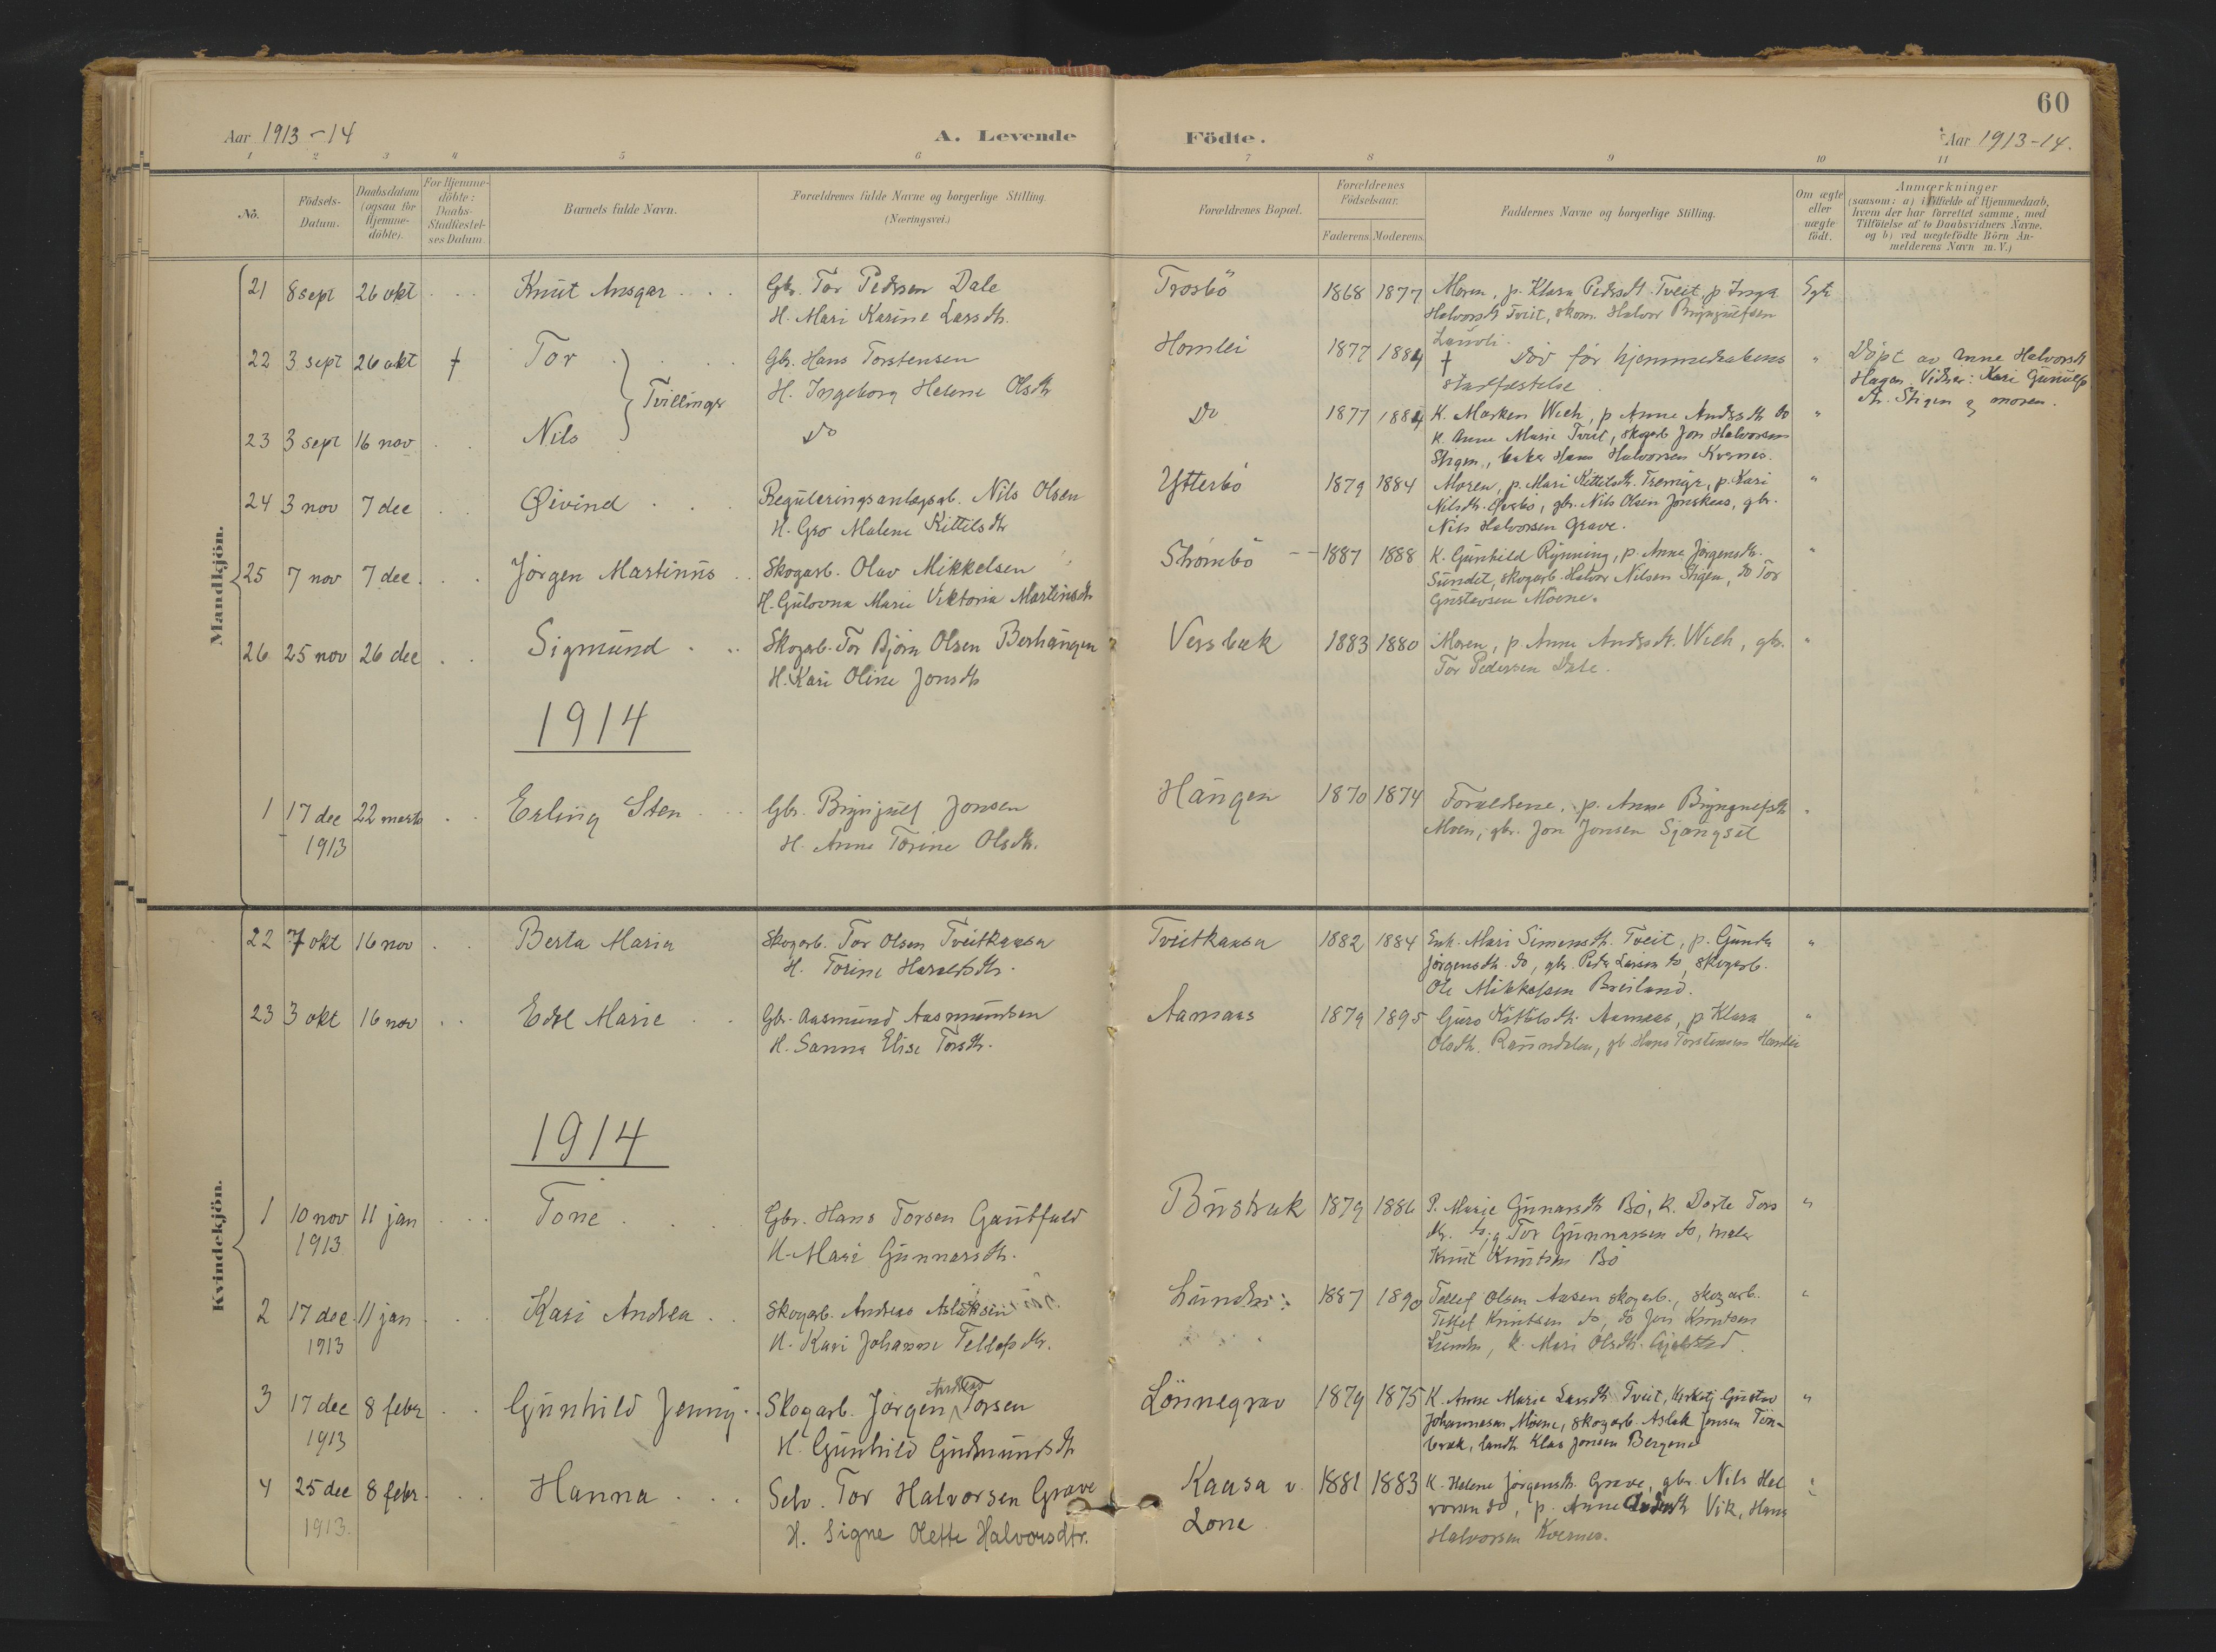 60
Aar 1913-14
A. Levende Födte.
Aar 1913-14.
1 2 3 4 5 6 7 8 9 10 11
No.
Födsels-Datum.
Daabsdatum (ogsaa for Hjemme-döbte).
For Hjemme-döbte: Daabs-Stadfæstel-ses Datum
Barnets fulde Navn.
Forældrenes fulde Navne og borgerlige Stilling.
(Næringsvei.)
Forældrenes Bopæl.
Forældrenes Födselsaar.
Faderens. Moderens.
Faddernes Navne og borgerlige Stilling.
Om ægte eller uægte födt.
Anmærkninger
(saasom: a) i Tilfælde af Hjemmedaab,
hvem der har forrettet samme, med
Tilföielse af to Daabsvidners Navne,
og b) ved uægtefödte Börn An-
melderens Navn m. V.)
Mandkjön.
21 8 sept 26 okt Knut Ansgar Gbr. Tor Pedersen Dale Trosbö 1868 1877 Moren, p. Klara Pedersdt. Tveit, p. Inga Egte
H. Mari Karine Larsdtr. Halvorsdt Tveit, skom. Halvor Brynjulfsen
22 3 sept 26 okt † Tor Gbr. Hans Torstensen Homlei 1877 1884 † Död før hjemmedaabens " Döpt av Anne Halvorsdt
Tvillinger H. Ingeborg Helene Olsdtr stadfæstelse Hagen. Vidner: Kari Gunulfs
dtr. Stigen og moren.
23 3 sept 16 nov Nils Do Do 1877 1884 K. Marken Wech, p Anne Andersdt do "
K. Anne Marie Tveit, skogarb Jon Halvorsen
Stigen, baker Hans Halvorsen Kvernes.
24 3 nov 7 dec Øivind Reguleringsanlægsarb. Nils Olsen Ytterbö 1879 1884 Moren, p. Mari Kittilsdtr. p. Kari "
H. Gro Malene Kittilsdtr Nilsdtr. gbr. Nils Olsen Jonskaas, gbr.
Nils Halvorsen Grave.
25 7 nov 7 dec. Jörgen Martinus Skogarb. Olav Mikkelsen Strømbö 1887 1888 K. Gunhild Rynning, p. Anne Jörgensdtr. "
H. Gulovna Marie Viktoria Martinsdtr Sundet, skogarb. Halvor Nilsen Stigen, do Tor
Gustavsen Moene.
26 25 nov 26 dec Sigmund Skogarb. Tor Bjørn Olsen Berhaugen Versbæk 1883 1880 Moren, p. Anne Andersdt. Wech, gbr. "
H. Kari Oline Jonsdtr Tor Pedersen Dale.
1914
1 17 dec 22 marts Erling Sten Gbr. Brynjulf Jonsen Haugen 1870 1874 Forældrene, p. Anne Brynjulfsdt "
1913 H. Anne Torine Olsdtr. Moen, gbr. Jon Jonsen Sjangset
Kvindekjön.
22 7 okt 16 nov Berta Maria Skogarb. Tor Olsen Tveitkaasa Tveitkaasa 1882 1884 Enk. Mari Simensdtr. Tveit, p. Gunda "
H. Torine Haraldsdtr. Jörgensdtr. do, gbr. Peder Larsen do, skogarb.
Ole Mikkelsen Breiland.
23 3 okt 16 nov Edel Marie Gbr. Aasmund Aasmundsen Aamaas 1879 1895 Guro Kittilsdtr. Aamaas, p Klara "
H. Sanna Elise Torsdtr. Olsdtr. Raundalen, gb. Hans Torstensen Homlei
1914
1 10 nov 11 jan Tone Gbr. Hans Torsen Gautfald Bustrak 1879 1886 P. Marie Gunarsdtr Bö, K. Dorte Tors "
1913 H. Mari Gunnarsdtr. dtr. do, g Tor Gunnarsen do, maler
Knut Knutsen Bö
2 17 dec. 11 jan Kari Andrea Skogarb. Andreas Aslaksen Lundei 1887 1890 Tellef Olsen Aasen skogarb., skogarb. "
1913 H. Kari Johanne Tellefsdtr. Tellef Knutsen do, do Jon Knutsen
K. Mari Olsdtr.
3 17 dec 8 febr Gunhild Jenny Skogarb. Jörgen Andreas Torsen Lönnegrav 1879 1875 K. Anne Marie Larsdtr Tveit, kirketj Gustav "
1913 H. Gunhild Gudmundsdtr Johannesen Moene, skogarb. Aslak Jensen Tim-
bræk, landh Klas Jonsen Bergene
4 25 dec 8 febr. Hanna Selv. Tor Halvorsen Grave Kaasa v. 1881 1883 K. Helene Jörgensdtr. Grave, gbr. Nils Hal "
1913. H. Signe Olette Halvorsdtr. Lone vorsen do, p. Anne Vik, Hans
Halvorsen Kvernes.